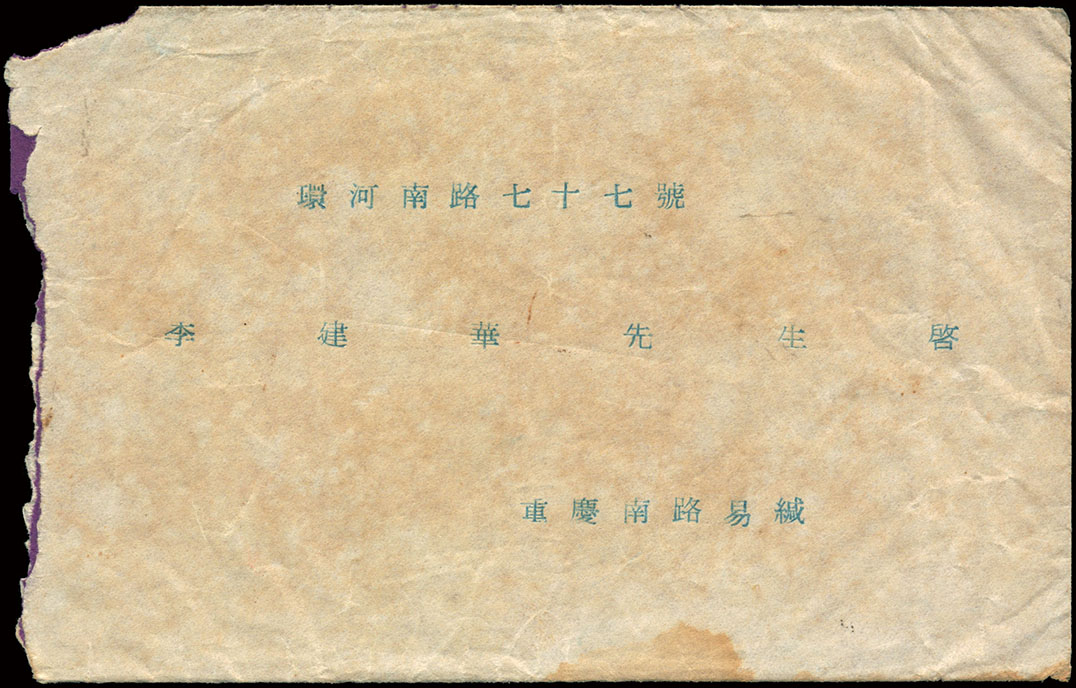 環河南路七十七號
李建華先生啓
重慶南路易緘